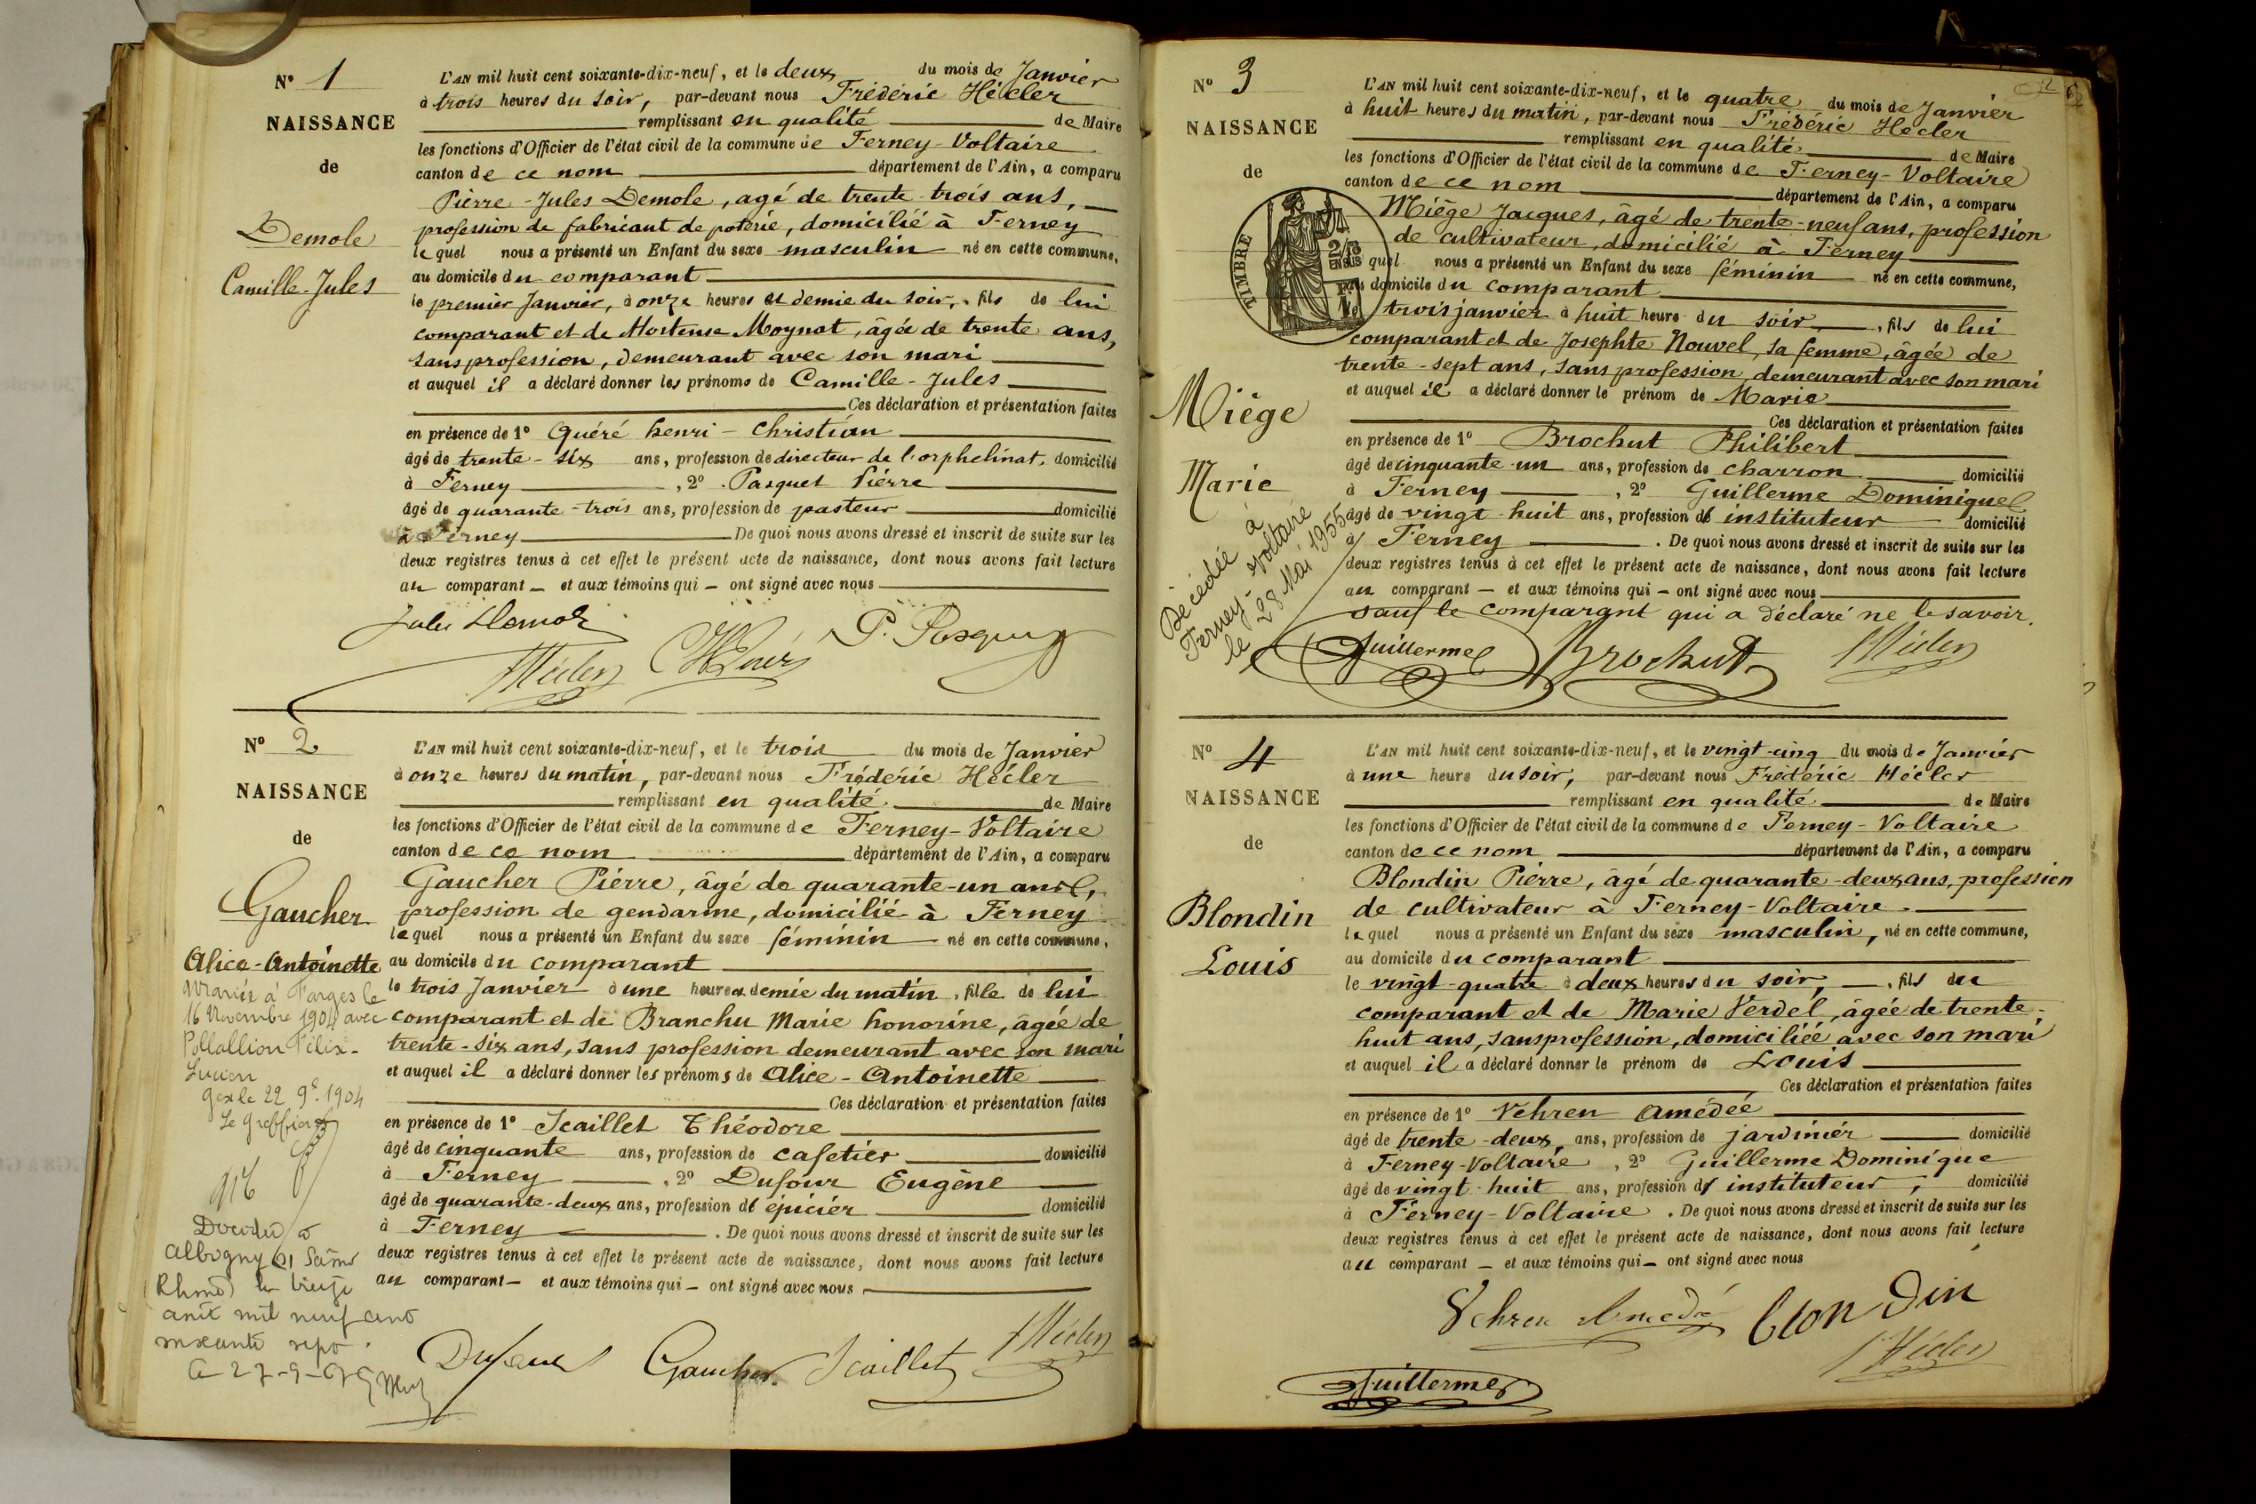 N° 1
NAISSANCE
de
Demole
Camille-Jules
L'AN mil huit cent soixante-dix-neuf, et le deux du mois de Janvier
à trois heures du soir, par-devant nous Frédéric Hécler
remplissant en qualité de Maire
les fonctions d'Officier de l'état civil de la commune de Ferney-Voltaire
canton de ce nom département de l'Ain, a comparu
Pierre-Jules Demole, agé de trente-trois ans,
profession de fabricant de poterie, domicilié à Ferney
le quel nous a présenté un Enfant du sexe masculin né en cette commune,
au domicile du comparant
le premier Janvier, à onze heures et demie du soir, fils de lui
comparant et de Hortense Moynat, âgée de trente ans,
sans profession, demeurant avec son mari
et auquel il a déclaré donner les prénoms de Camille-Jules
Ces déclaration et présentation faites
en présence de 1° Quéré henri-Christian
âgé de trente-six ans, profession de directeur de l'orphelinat, domicilié
à Ferney, 2° Pasquet Pierre
âgé de quarante-trois ans, profession de pasteur domicilié
à Ferney De quoi nous avons dressé et inscrit de suite sur les
deux registres tenus à cet effet le présent acte de naissance, dont nous avons fait lecture
au comparant – et aux témoins qui – ont signé avec nous
Jules Demole
P. Pasquet
Hécler
N° 2
NAISSANCE
de
Gaucher
Alice-Antoinette
L'AN mil huit cent soixante-dix-neuf, et le trois du mois de Janvier
à onze heures du matin, par-devant nous Frédéric Hécler
remplissant en qualité de Maire
les fonctions d'Officier de l'état civil de la commune de Ferney-Voltaire
canton de ce nom département de l'Ain, a comparu
Gaucher Pierre, âgé de quarante-un ans,
profession de gendarme, domicilié à Ferney
le quel nous a présenté un Enfant du sexe féminin né en cette commune,
au domicile du comparant
le trois Janvier à une heure et demie du matin, fille de lui
comparant et de Branchu Marie honorine, âgée de
trente-six ans, sans profession demeurant avec son mari
et auquel il a déclaré donner les prénoms de Alice-Antoinette
Ces déclaration et présentation faites
en présence de 1° Scaillet Théodore
âgé de cinquante ans, profession de cafetier domicilié
à Ferney, 2° Dufour Eugène
âgé de quarante-deux ans, profession d'épicier domicilié
à Ferney. De quoi nous avons dressé et inscrit de suite sur les
deux registres tenus à cet effet le présent acte de naissance, dont nous avons fait lecture
au comparant – et aux témoins qui – ont signé avec nous
Mariée à Farges le
16 Novembre 1904 avec
Pollallion Félix-
Lucien
Gex le 22 9e 1904
Le Greffier
Décédée à
Albigny s/ Saône
(Rhône) le treize
août mil neuf cent
soixante sept
Dufour
Gaucher
Scaillet
Hécler
N° 3
NAISSANCE
de
TIMBRE
Miége
Marie
Décédée à
Ferney-Voltaire
le 28 Mai 1955
L'AN mil huit cent soixante-dix-neuf, et le quatre du mois de Janvier
à huit heures du matin, par-devant nous Frédéric Hécler
remplissant en qualité de Maire
les fonctions d'Officier de l'état civil de la commune de Ferney-Voltaire
canton de ce nom département de l'Ain, a comparu
Miége Jacques, âgé de trente-neuf ans, profession
de cultivateur, domicilié à Ferney
quel nous a présenté un Enfant du sexe féminin né en cette commune,
domicile du comparant
trois janvier à huit heure du soir, fils de lui
comparant et de Josephte Nouvel, sa femme, âgée de
trente-sept ans, sans profession demeurant avec son mari
et auquel il a déclaré donner le prénom de Marie
Ces déclaration et présentation faites
en présence de 1° Brochut Philibert
âgé de cinquante-un ans, profession de charron domicilié
à Ferney, 2° Guillerme Dominique
âgé de vingt-huit ans, profession d'instituteur domicilié
à Ferney. De quoi nous avons dressé et inscrit de suite sur les
deux registres tenus à cet effet le présent acte de naissance, dont nous avons fait lecture
au comparant – et aux témoins qui – ont signé avec nous
sauf le comparant qui a déclaré ne le savoir.
Guillerme
Brochut
Hécler
N° 4
NAISSANCE
de
Blondin
Louis
L'AN mil huit cent soixante-dix-neuf, et le vingt-cinq du mois de Janvier
à une heure du soir, par-devant nous Frédéric Hécler
remplissant en qualité de Maire
les fonctions d'Officier de l'état civil de la commune de Ferney-Voltaire
canton de ce nom département de l'Ain, a comparu
Blondin Pierre, âgé de quarante-deux ans, profession
de cultivateur à Ferney-Voltaire
le quel nous a présenté un Enfant du sexe masculin, né en cette commune,
au domicile du comparant
le vingt-quatre à deux heures du soir, fils du
comparant et de Marie Verdel, âgée de trente-
huit ans, sans profession, domiciliée avec son mari
et auquel il a déclaré donner le prénom de Louis
Ces déclaration et présentation faites
en présence de 1° Vehren Amédée
âgé de trente-deux ans, profession de jardinier domicilié
à Ferney-Voltaire, 2° Guillerme Dominique
âgé de vingt-huit ans, profession d'instituteur, domicilié
à Ferney-Voltaire. De quoi nous avons dressé et inscrit de suite sur les
deux registres tenus à cet effet le présent acte de naissance, dont nous avons fait lecture
au comparant – et aux témoins qui – ont signé avec nous
Vehren Amedée
blondin
Hécler
Guillerme